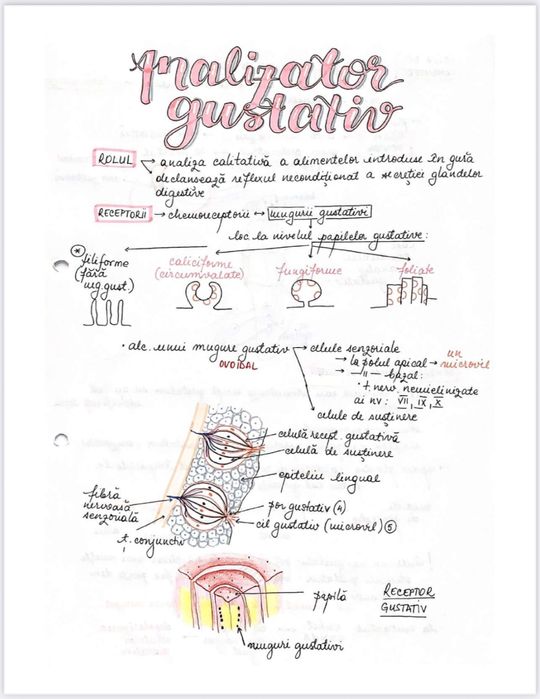 Analizator
gustativ
ROLUL → analiza calitativă a alimentelor introduse în gură
→ declanșează reflexul necondiționat a secreției glandelor
digestive
RECEPTORII → chemoreceptorii ↔ mugurii gustativi
loc. la nivelul papilelor gustative:
* filiforme
(fără
mg.gust.)
caliciforme
(circumvalate)
fungiforme
foliate
• alc. unui mugure gustativ → celule senzoriale
OVOIDAL
→ la polul apical → un
microvil
→ —||— bazal:
• t. nerv. nemielinizate
ai nv: VII, IX, X
celule de susținere
celulă recept. gustativă
celulă de susținere
epiteliu lingual
fibră
nervoasă
senzorială
por gustativ (4)
cil gustativ (microvil) 5
t. conjunctiv
papilă
RECEPTOR
GUSTATIV
muguri gustativi